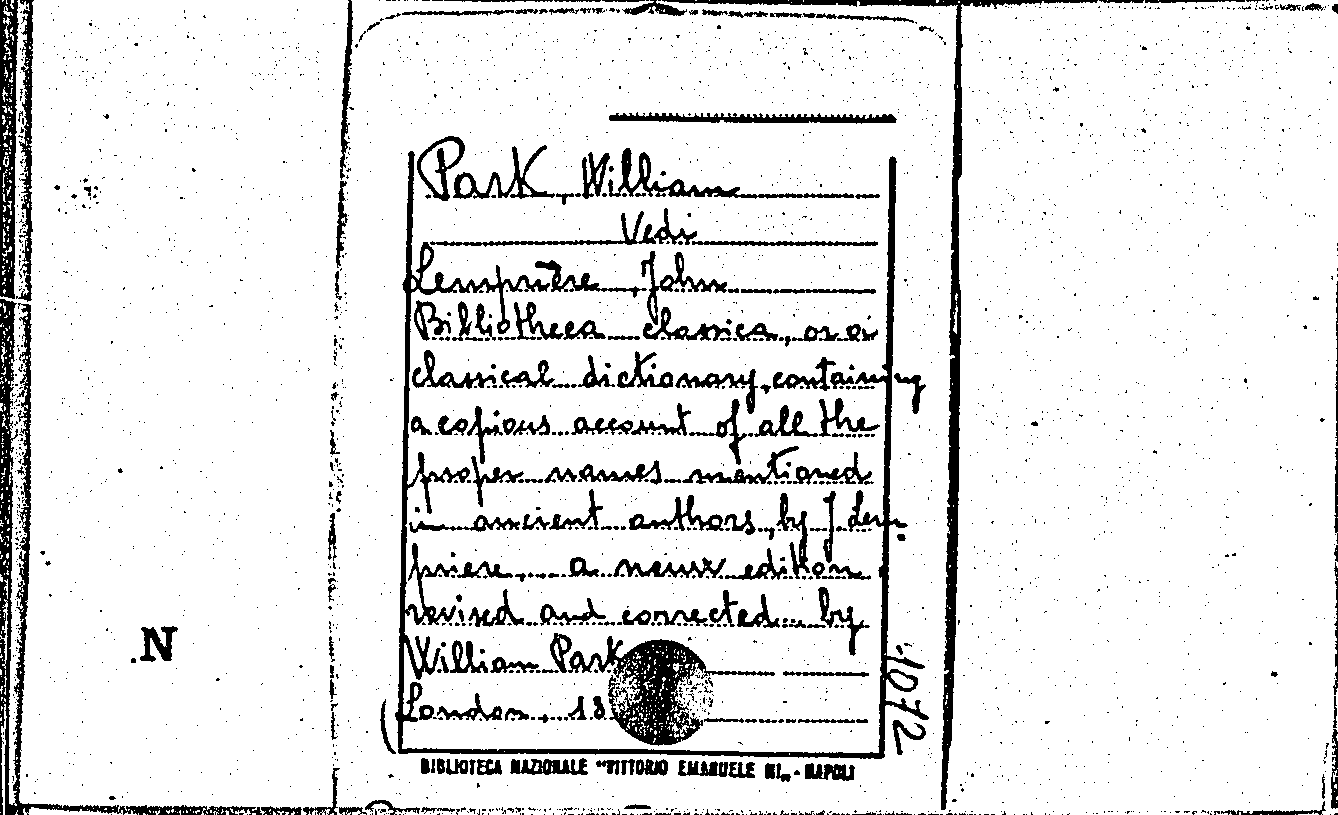 Park, William
Vedi
Lemprière, John
Bibliotheca classica, or a
classical dictionary, containing
a copious account of all the
proper names mentioned
in ancient authors, by J. Lem-
priere, a neuw edition
revised and corrected by
William Park
London, 18
BIBLIOTECA NAZIONALE "VITTORIO EMANUELE III" - NAPOLI
1072
N